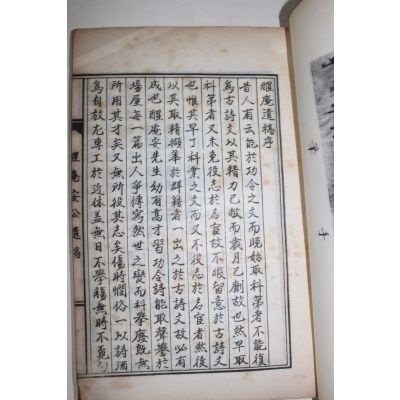 醒庵遺稿序
昔人有云能於功令之文而晩始取科第者不能復
爲古詩文以其精力已敝而歲月已劇故也然早取
科第者又未免役志於名宦故不暇留意於古詩文
也惟其早了科業之文而又不役志於名宦者然後
以其取精擷華於群籍者一出之於古詩文故必有
成也醒庵安先生幼有高才習功令詩能取聲譽於
場屋每一篇出人爭傳寫然世之變而科擧廢旣無
所用其才矣又無所役其志矣傷時憫俗一以詩酒
爲自放尤專工於近体盖無日不擧觴無時不覓句
醒庵安公遺稿